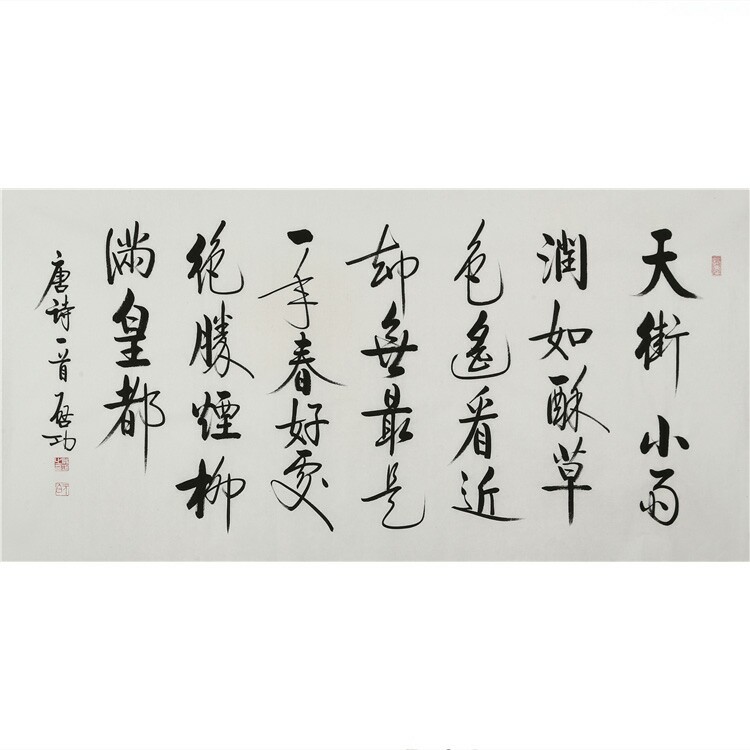 天街小雨
潤如酥草
色遙看近
却無最是
一年春好處
絕勝煙柳
滿皇都
唐詩一首 啟功